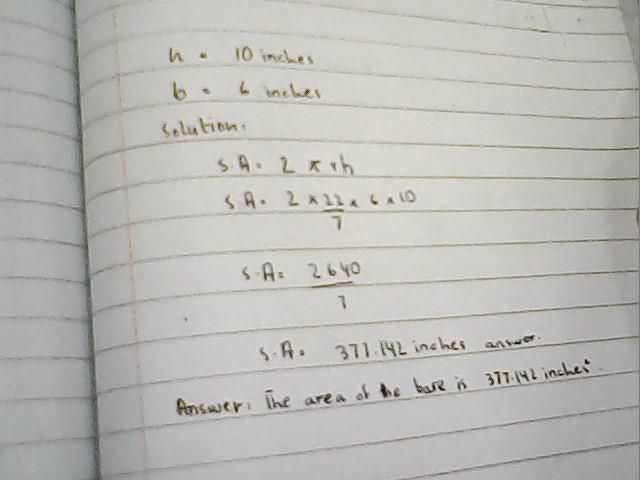 h = 10 inches
b = 6 inches
Solution:
S.A = 2 π r h
S.A = 2 × 22 × 6 × 10
7
S.A = 2640
7
S.A = 377.142 inches answer.
Answer: The area of the base is 377.142 inches².